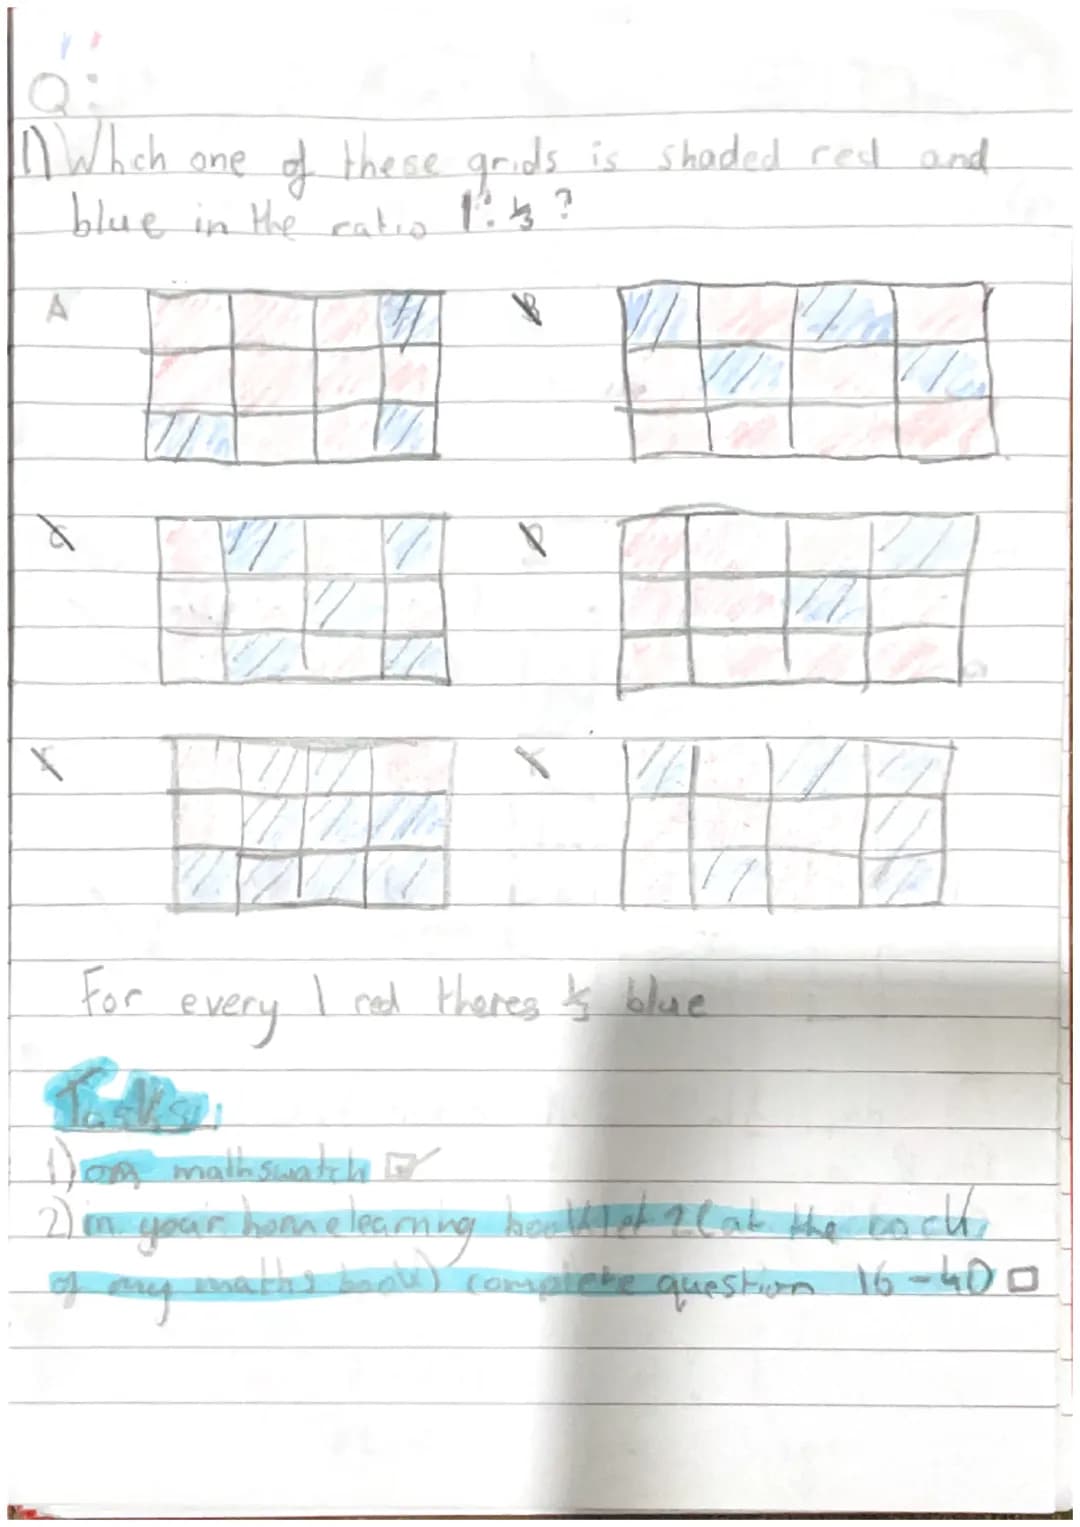 Q:
1) Which one of these grids is shaded red and
blue in the ratio 1:⅓?
A
B
C
D
E
F
For every 1 red theres ⅓ blue
Tasks:
1) on mathswatch
2) in your home learning booklet 2 (at the back
of my maths book) complete question 16-40